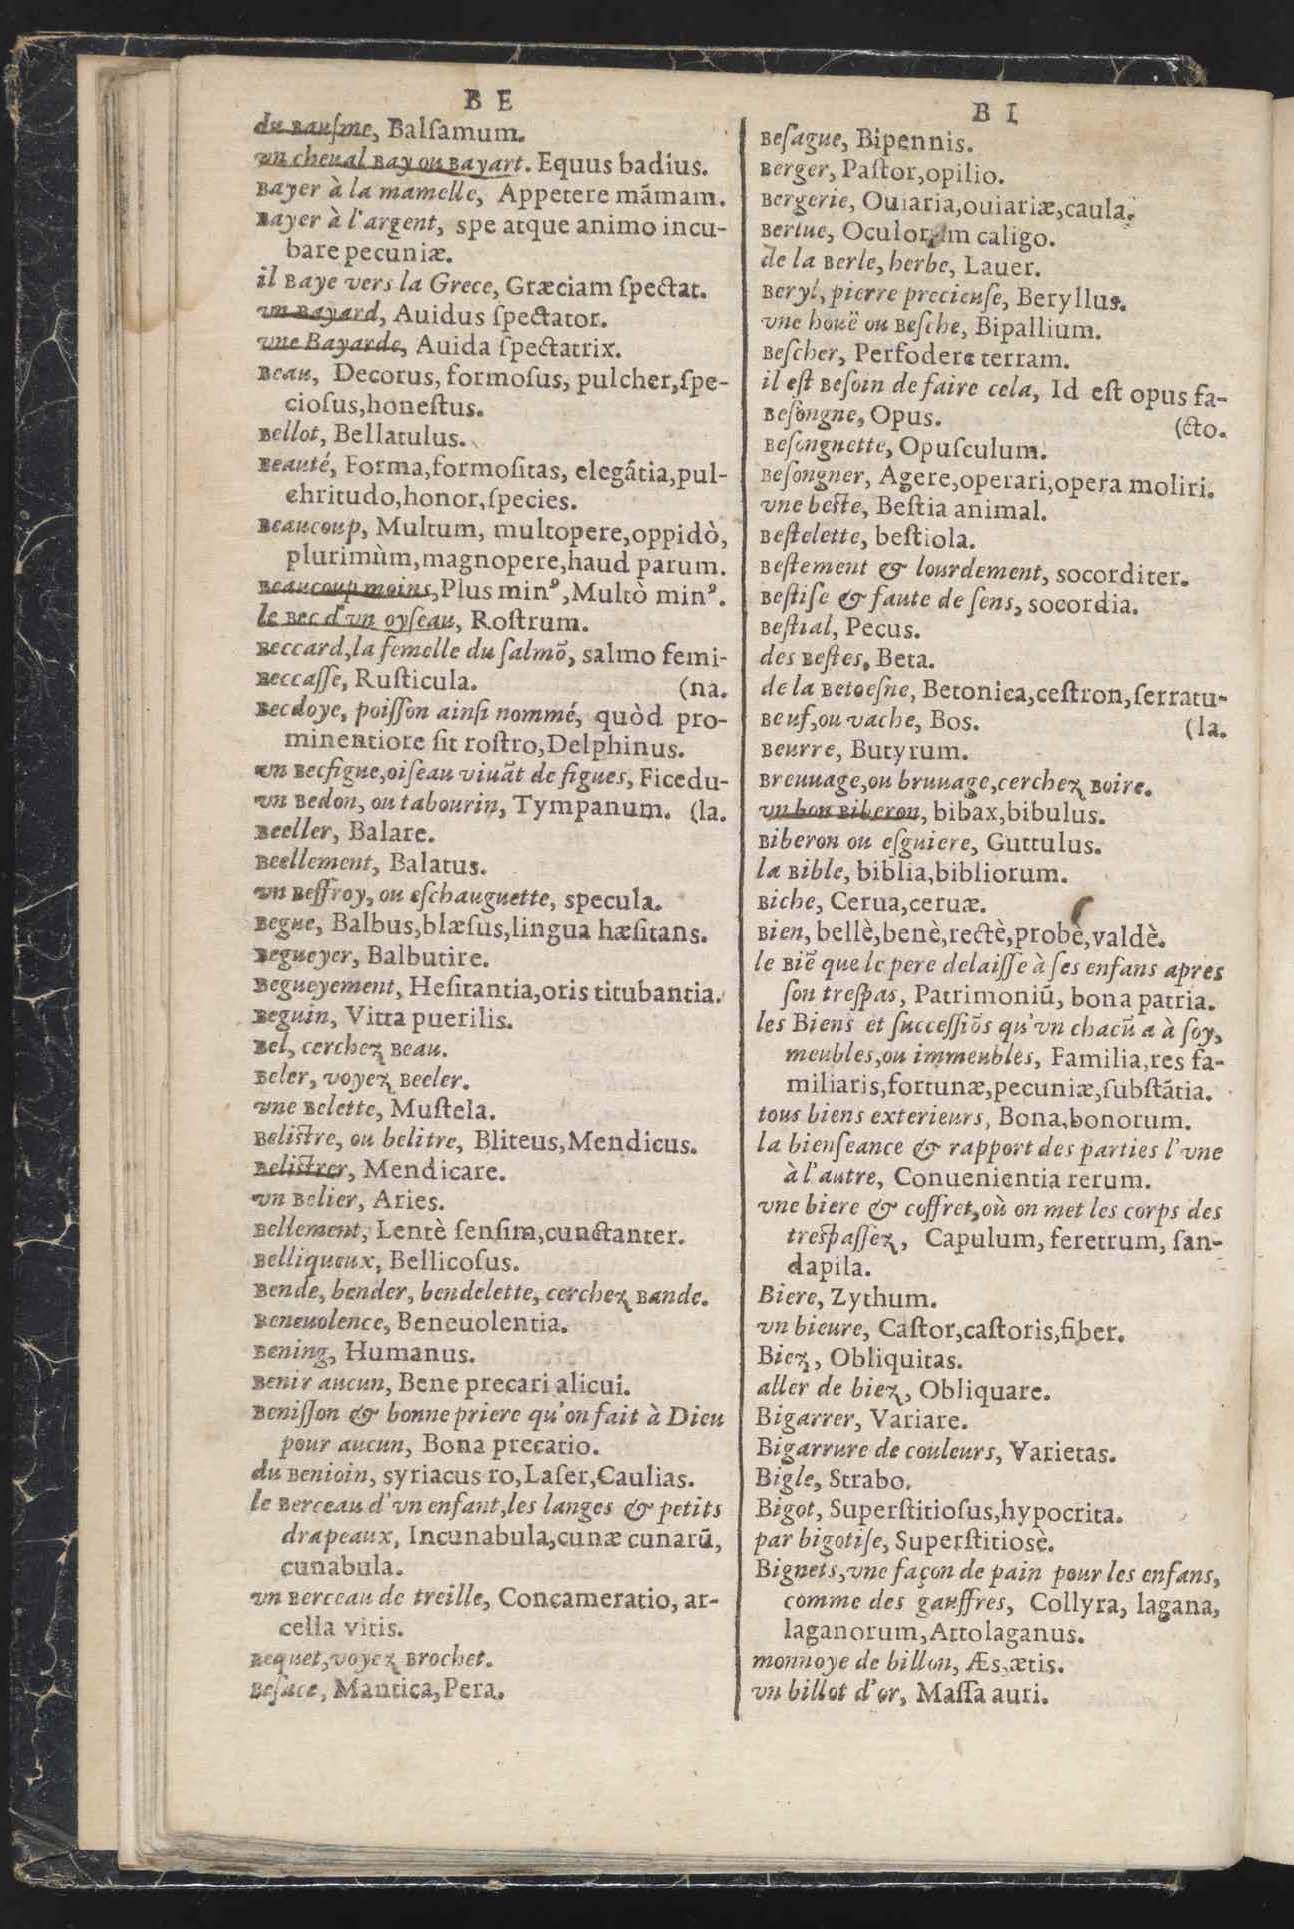 BE
du Bauſme, Balſamum.
vn cheual Bay ou Bayart. Equus badius.
Bayer à la mamelle, Appetere mãmam.
Bayer à l'argent, spe atque animo incu-
bare pecuniæ.
il Baye vers la Grece, Græciam ſpectat.
vn Bayard, Auidus ſpectator.
vne Bayarde, Auida ſpectatrix.
Beau, Decorus, formoſus, pulcher, ſpe-
cioſus, honeſtus.
Bellot, Bellatulus.
Beauté, Forma, formoſitas, elegãtia, pul-
chritudo, honor, ſpecies.
Beaucoup, Multum, multopere, oppidò,
plurimùm, magnopere, haud parum.
Beaucoup moins, Plus minꝰ, Multò minꝰ.
le Bec d'vn oyſeau, Roſtrum.
Beccard, la femelle du ſalmõ, salmo femi-
Beccaſſe, Ruſticula. (na.
Becdoye, poiſſon ainſi nommé, quòd pro-
minentiore ſit roſtro, Delphinus.
vn Becfigue, oiſeau viuãt de figues, Ficedu-
vn Bedon, ou tabourin, Tympanum. (la.
Beeller, Balare.
Beellement, Balatus.
vn Beffroy, ou eſchauguette, specula.
Begue, Balbus, blæſus, lingua hæſitans.
Begueyer, Balbutire.
Begueyement, Heſitantia, oris titubantia.
Beguin, Vitta puerilis.
Bel, cerchez Beau.
Beler, voyez Beeler.
vne Belette, Muſtela.
Beliſtre, ou belitre, Bliteus, Mendicus.
Beliſtrer, Mendicare.
vn Belier, Aries.
Bellement, Lentè ſenſim, cunctanter.
Belliqueux, Bellicoſus.
Bende, bender, bendelette, cerchez Bande.
Beneuolence, Beneuolentia.
Bening, Humanus.
Benir aucun, Bene precari alicui.
Beniſſon & bonne priere qu'on fait à Dieu
pour aucun, Bona precatio.
du Benioin, syriacus ro, Laſer, Caulias.
le Berceau d'vn enfant, les langes & petits
drapeaux, Incunabula, cunæ cunarũ,
cunabula.
vn Berceau de treille, Concameratio, ar-
cella vitis.
Bequet, voyez Brochet.
Beſace, Mantica, Pera.
BI
Beſague, Bipennis.
Berger, Paſtor, opilio.
Bergerie, Ouiaria, ouiariæ, caula.
Berlue, Oculorum caligo.
de la Berle, herbe, Lauer.
Beryl, pierre precieuſe, Beryllus.
vne houë ou Beſche, Bipallium.
Beſcher, Perfodere terram.
il eſt Beſoin de faire cela, Id eſt opus fa-
Beſongne, Opus. (cto.
Beſongnette, Opuſculum.
Beſongner, Agere, operari, opera moliri.
vne beſte, Beſtia animal.
Beſtelette, beſtiola.
Beſtement & lourdement, socorditer.
Beſtiſe & faute de ſens, socordia.
Beſtial, Pecus.
des Beſtes, Beta.
de la Betoeſne, Betonica, ceſtron, ſerratu-
Beuf, ou vache, Bos. (la.
Beurre, Butyrum.
Breuuage, ou bruuage, cerchez Boire.
vn bon Biberon, bibax, bibulus.
Biberon ou eſguiere, Guttulus.
la Bible, biblia, bibliorum.
Biche, Cerua, ceruæ.
Bien, bellè, benè, rectè, probè, valdè.
le Biẽ que le pere delaiſſe à ſes enfans apres
ſon treſpas, Patrimoniũ, bona patria.
les Biens et ſucceſſiõs qu'vn chacũ a à ſoy,
meubles, ou immeubles, Familia, res fa-
miliaris, fortunæ, pecuniæ, ſubſtãtia.
tous biens exterieurs, Bona, bonorum.
la bienſeance & rapport des parties l'vne
à l'autre, Conuenientia rerum.
vne biere & coffret, où on met les corps des
treſpaſſez, Capulum, feretrum, ſan-
dapila.
Biere, Zythum.
vn bieure, Caſtor, caſtoris, fiber.
Biez, Obliquitas.
aller de biez, Obliquare.
Bigarrer, Variare.
Bigarrure de couleurs, Varietas.
Bigle, Strabo.
Bigot, Superſtitioſus, hypocrita.
par bigotiſe, Superſtitiosè.
Bignets, vne façon de pain pour les enfans,
comme des gauffres, Collyra, lagana,
laganorum, Attolaganus.
monnoye de billon, Æs, ætis.
vn billot d'or, Maſſa auri.